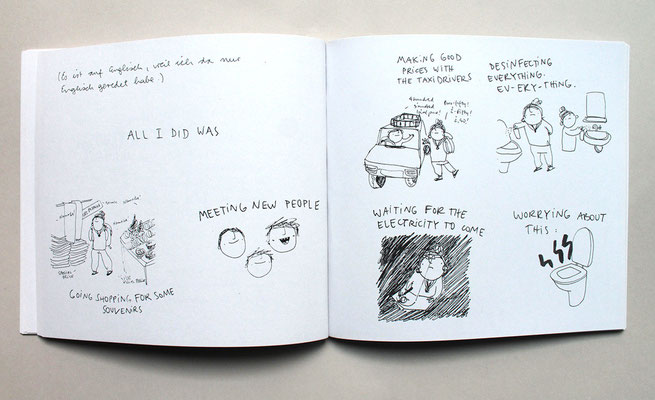 (Es ist auf Englisch, weil ich da nur
Englisch geredet habe)
ALL I DID WAS
SPECIAL
PRICE
GOING SHOPPING FOR SOME
SOUVENIRS
MEETING NEW PEOPLE
MAKING GOOD
PRICES WITH
THE TAXIDRIVERS
DESINFECTING
EVERYTHING.
EV-ERY-THING.
WAITING FOR THE
ELECTRICITY TO COME
WORRYING ABOUT
THIS: